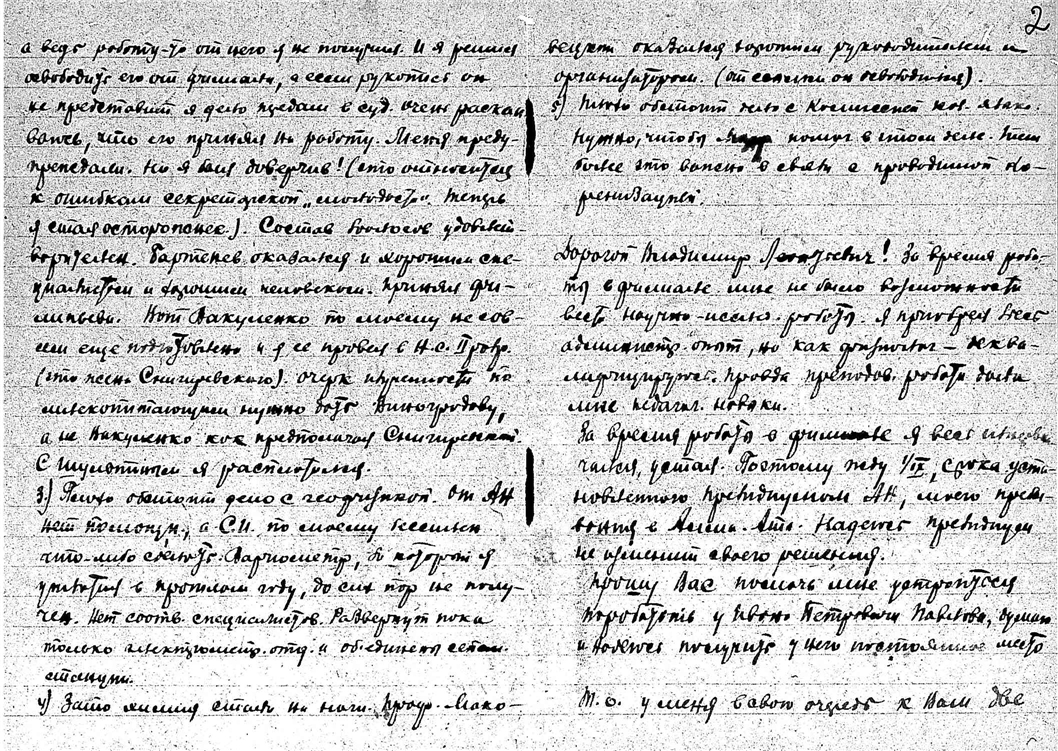 2
а ведь работу-то от него я не получил. И я решил
освободить его от филиала, а если рукопись он
не представит я дело предам в суд. Очень раскаи
ваюсь, что его принял на работу. Меня преду-
преждали. Но я был доверчив! (это относится
к ошибкам секретарской „молодости". Теперь
я стал осторожнее). Состав биологов удовлет-
ворителен. Бартенев оказался и хорошим спе-
циалистом и хорошим человеком. Принял Фи-
липьева. Вот Вакуленко по моему не сов-
сем еще подготовлена и я ее провел в Н.С. II разр.
(это жена Снигиревского). Очерк по
млекопитающим нужно дать Виноградову,
а не Вакуленко как предполагал Снигиревский.
С Шулятиным я расстался.
3.) Плохо обстоит дело с геофизикой. От АН
нет помощи, а С.И. по моему бессилен
что-либо сделать. Вариометр, за которой я
уплатил в прошлом году, до сих пор не полу-
чен. Нет соотв. специалистов. Развернут пока
только электрометр. отд. и объединены сейсм.
станции.
4) Зато химия стала на ноги. Проф. Мако-
вецкий оказался хорошим руководителем и
организатором. (от он освободился).
5) Плохо обстоит дело с Комиссией
Нужно, чтобы помог в этом деле. Тем
более это важно в связи с проводимой ко-
ренизацией.
Дорогой Владимир Леонтьевич! За время рабо-
ты в филиале мне не было возможности
вести научно-исслед. работу. Я приобрел
администр. опыт, но как физиолог – деква-
лифицируюсь. Правда препод. работа дала
мне педагог. навыки.
За время работы в филиале я весь
чился, устал. Поэтому жду 1/IX, срока уста-
новленного президиумом АН, моего пребы-
вания в Алма-Ата. Надеюсь президиум
не изменит своего решения.
Прошу Вас помочь мне устроиться
поработать у Ивана Петровича Павлова, думаю
и надеюсь получить у него постоянное место
Т.о. у меня в свою очередь к Вам две